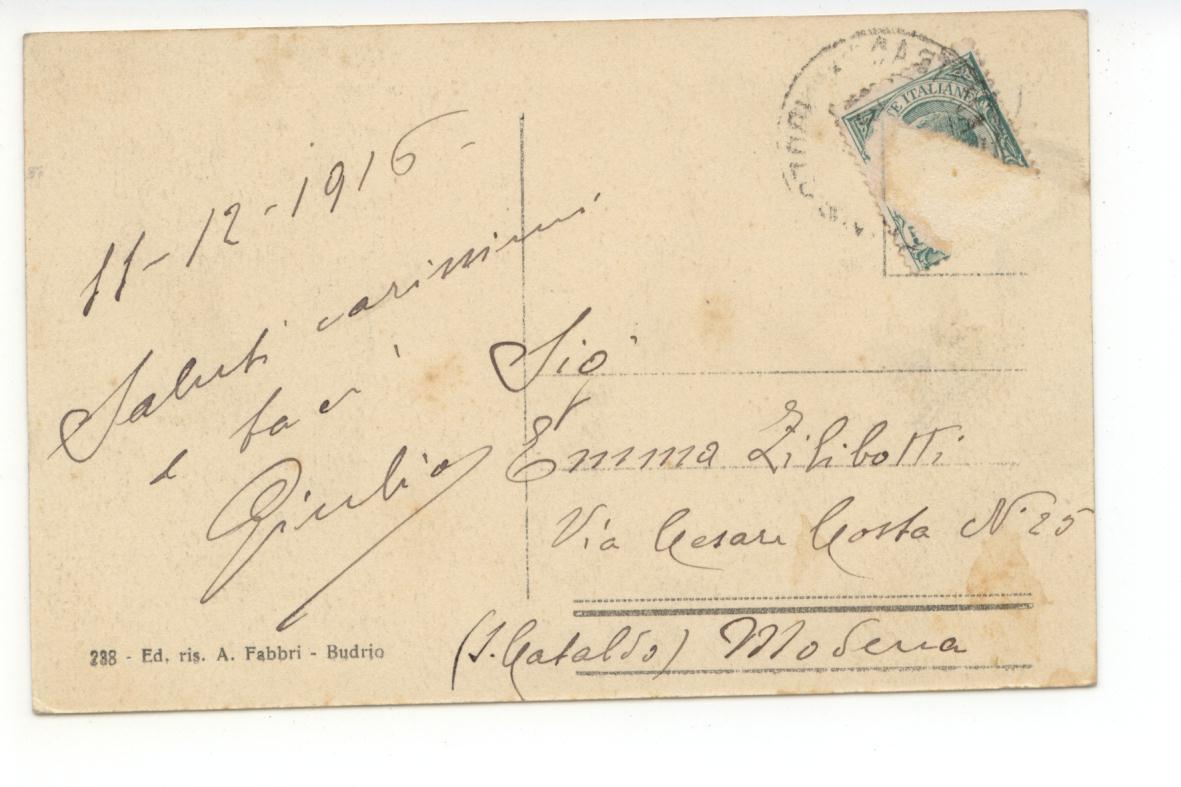 11-12-1916-
Saluti carissimi
e baci
Giulio
E ITALIANE
Sigª
Emma Zilibotti
Via Cesare Costa N. 25
(S. Cataldo) Modena
238 - Ed. ris. A. Fabbri - Budrio